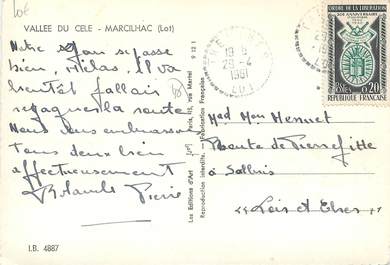 Lot
VALLEE DU CELE - MARCILHAC (Lot)
Notre séjour se passe
bien, Hélas, il va
bientôt falloir
regagner la route
Nous vous embrassons
tous deux bien
affectueusement
Rolande Pierre
I.B. 4887
Les Editions d'Art
Paris, 15, rue Martel
9 12 1
Reproduction interdite. - Fabrication Française
28-4
1961
LOT
ORDRE DE LA LIBÉRATION
XXe ANNIVERSAIRE
POSTES 0,20
REPUBLIQUE FRANÇAISE
Mad Mon Mennet
Route de Pierrefitte
à Salbris
Loir et Cher